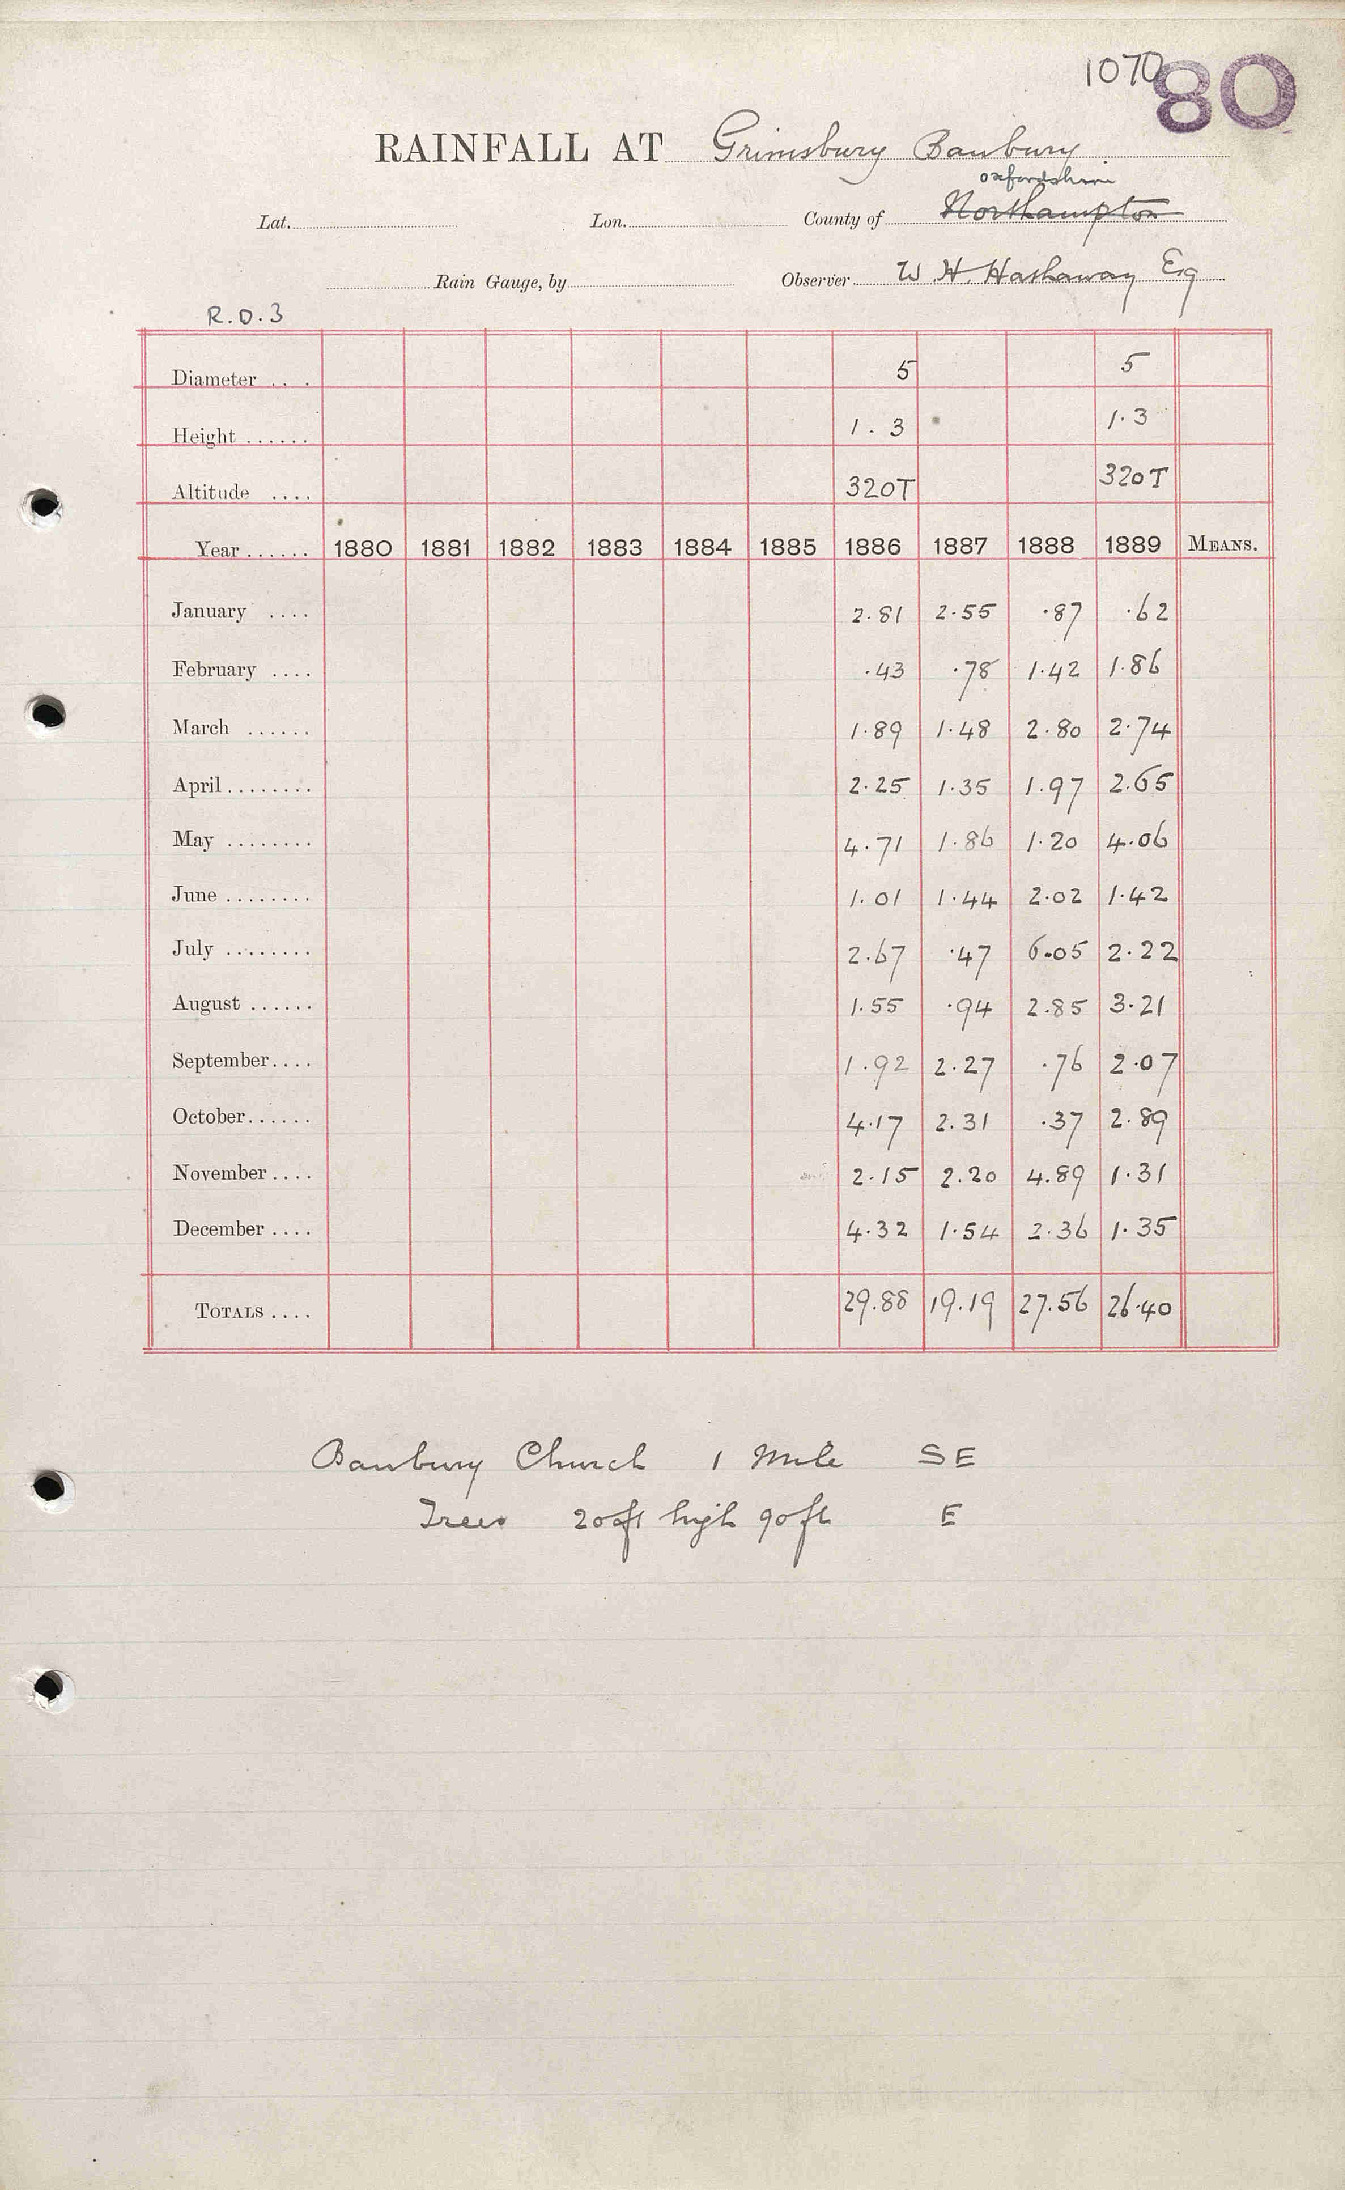 1070 80
RAINFALL AT Grimsbury Banbury
Oxfordshire
Lat. Lon. County of Northampton
Rain Gauge, by Observer W H. Hathaway Esq
R.O.3
Diameter .. . 5 5
Height ...... 1.3 1.3
Altitude .... 320T 320T
Year ...... 1880 1881 1882 1883 1884 1885 1886 1887 1888 1889 MEANS.
January .... 2.81 2.55 .87 .62
February .... .43 .78 1.42 1.86
March ...... 1.89 1.48 2.80 2.74
April ........ 2.25 1.35 1.97 2.65
May ........ 4.71 1.86 1.20 4.06
June ........ 1.01 1.44 2.02 1.42
July ........ 2.67 .47 6.05 2.22
August ...... 1.55 .94 2.85 3.21
September.... 1.92 2.27 .76 2.07
October...... 4.17 2.31 .37 2.89
November.... 2.15 2.20 4.89 1.31
December .... 4.32 1.54 2.36 1.35
TOTALS .... 29.88 19.19 27.56 26.40
Banbury Church 1 Mile SE
Trees 20ft high 90ft E